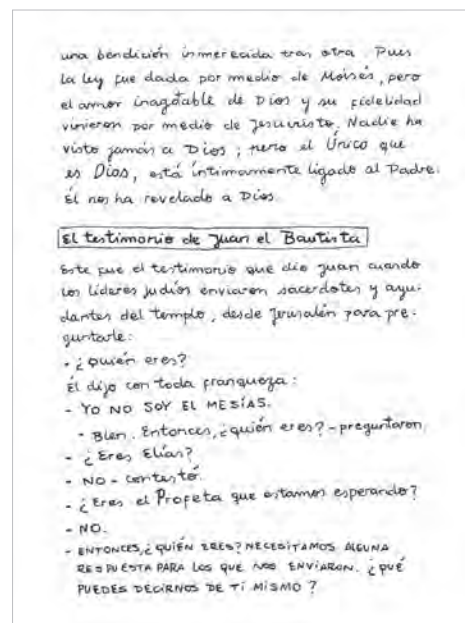 una bendición inmerecida tras otra. Pues
la ley fue dada por medio de Moisés, pero
el amor inagotable de Dios y su fidelidad
vinieron por medio de Jesucristo. Nadie ha
visto jamás a Dios; pero el Único que
es Dios, está íntimamente ligado al Padre.
Él nos ha revelado a Dios.
El testimonio de Juan el Bautista
Este fue el testimonio que dio Juan cuando
los líderes judíos enviaron sacerdotes y ayu-
dantes del templo, desde Jerusalén para pre-
guntarle:
- ¿Quién eres?
Él dijo con toda franqueza:
- YO NO SOY EL MESÍAS.
- Bien. Entonces, ¿quién eres? - preguntaron
- ¿Eres Elías?
- NO - contestó.
- ¿Eres el Profeta que estamos esperando?
- NO.
- ENTONCES, ¿QUIÉN ERES? NECESITAMOS ALGUNA
RESPUESTA PARA LOS QUE NOS ENVIARON. ¿QUÉ
PUEDES DECIRNOS DE TI MISMO?